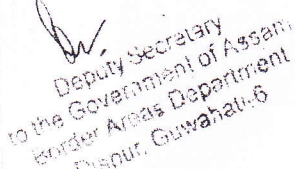 Deputy Secretary
to the Government of Assam
Border Areas Department
Dispur, Guwahati-6